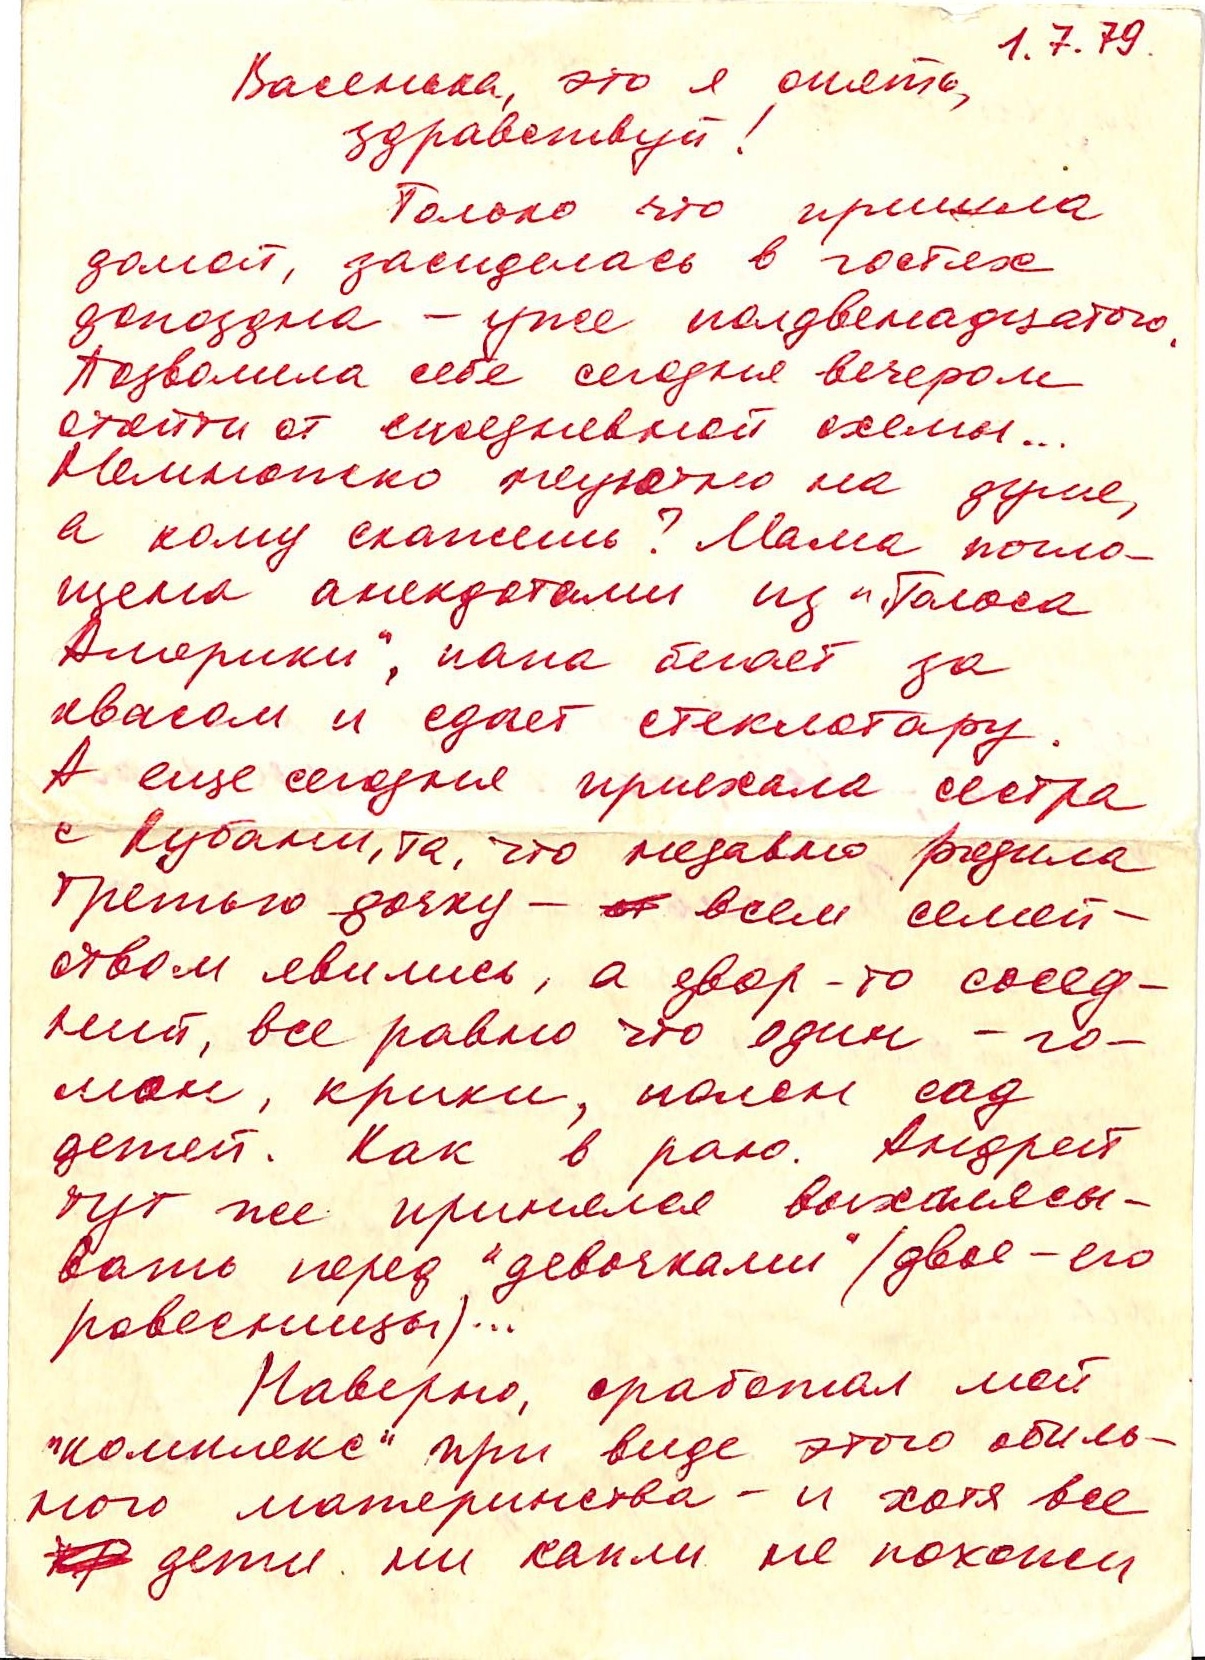 1.7.79.
Васенька, это я опять,
здравствуй!
Только что пришла
домой, засиделась в гостях
допоздна – уже полдвенадцатого.
Позволила себе сегодня вечером
отойти от ежедневной схемы...
Немножко неуютно на душе,
а кому скажешь? Мама погло-
щена анекдотами из "Голоса
Америки", папа бегает за
квасом и сдает стеклотару.
А еще сегодня приехала сестра
с Кубани, та, что недавно родила
третью дочку – всем семей-
ством явились, а двор-то сосед-
ний, все равно что один – го-
мон, крики, полон сад
детей. Как в раю. Андрей
тут же принялся выкаблучи-
вать перед "девочками" (двое – его
ровесницы)...
Наверно, сработал мой
"комплекс" при виде этого обиль-
ного материнства – и хотя все
дети ни капли не похожи